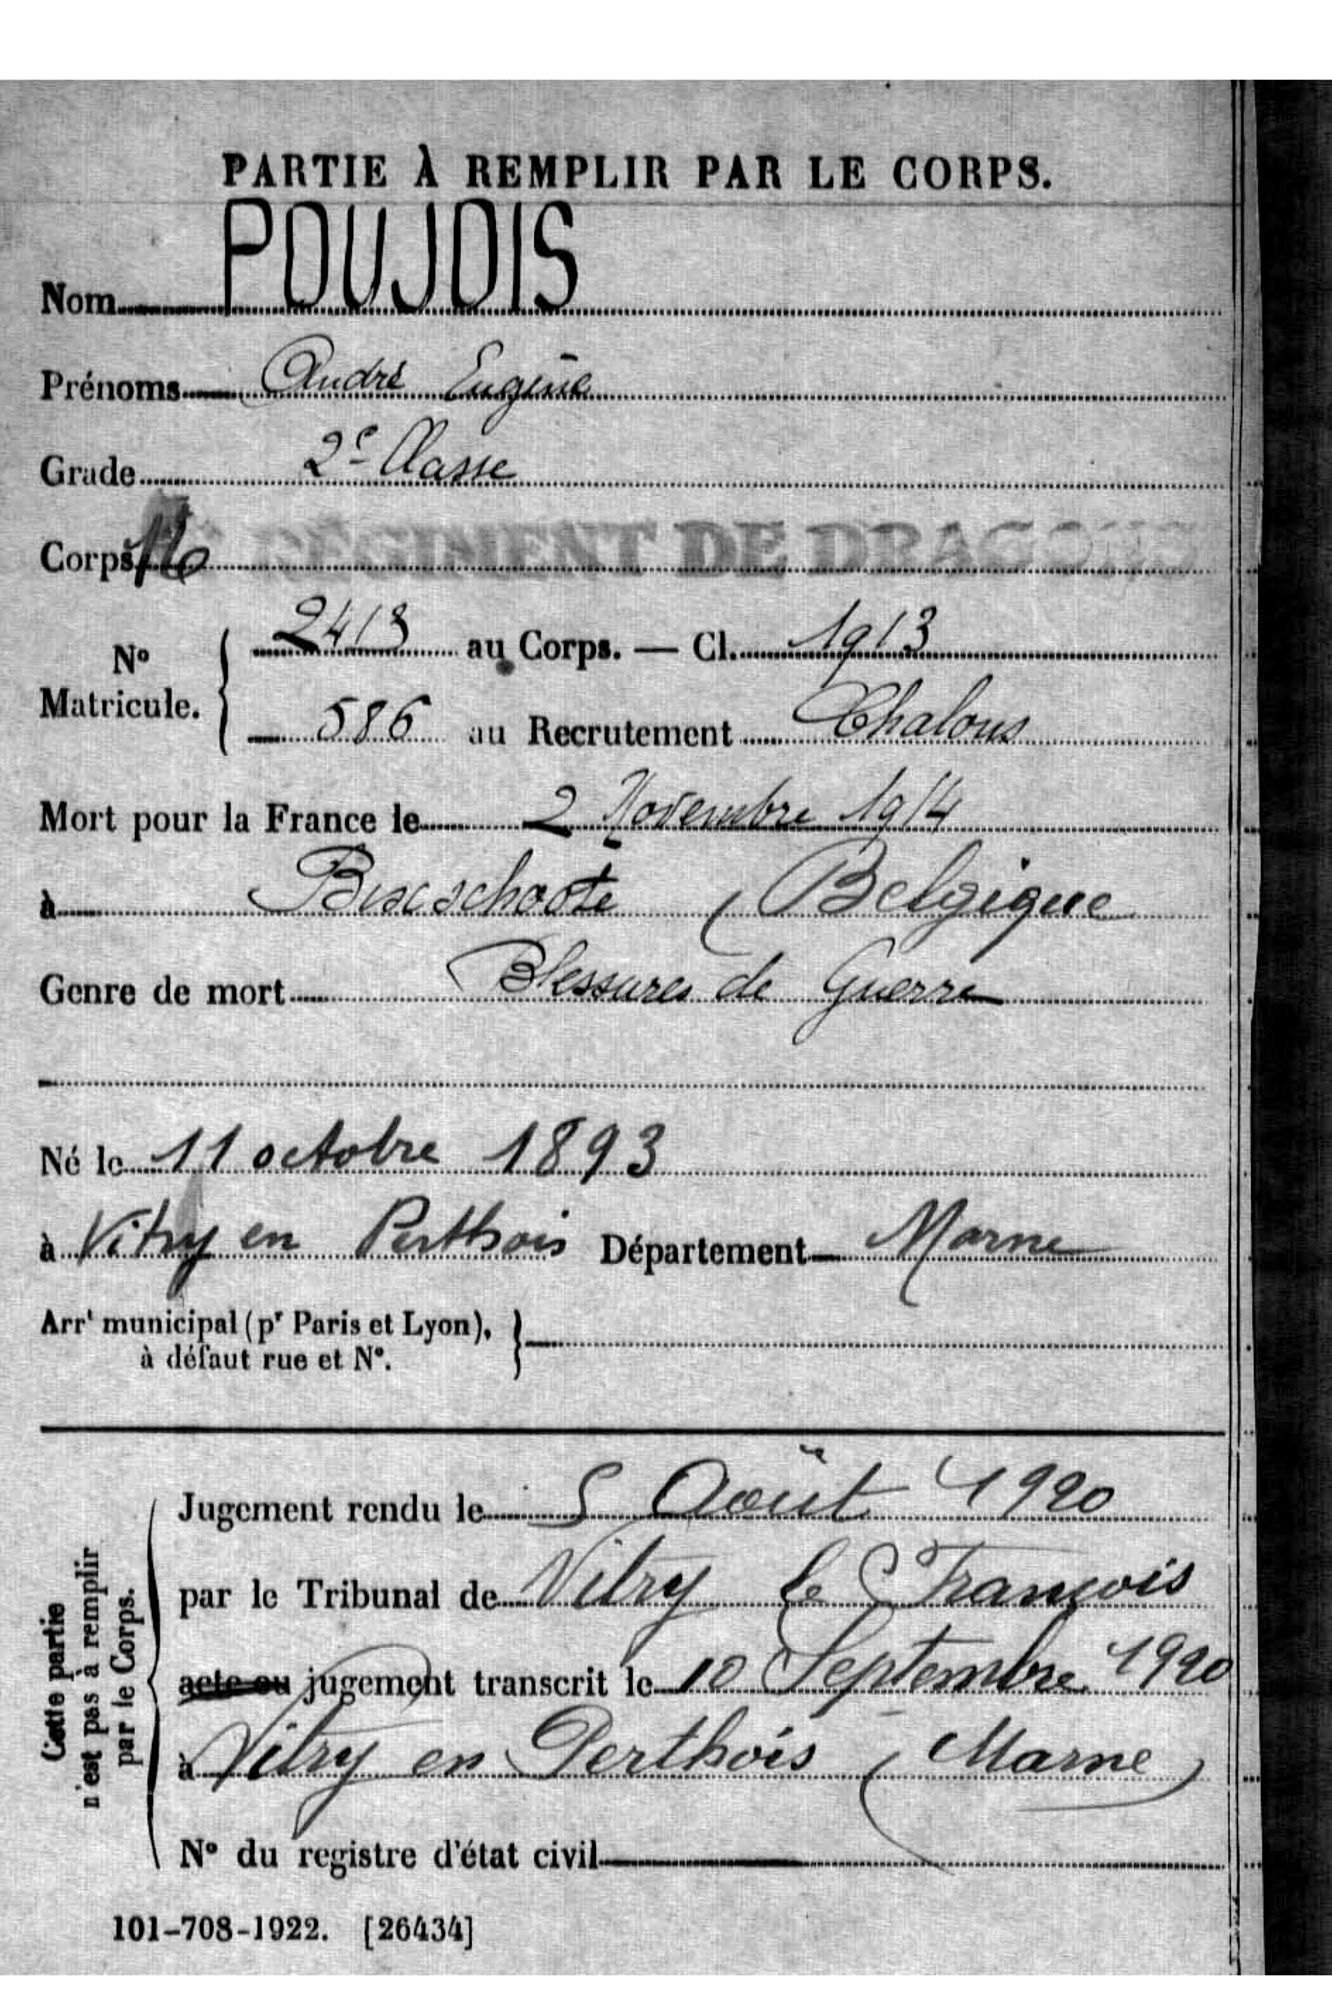 PARTIE À REMPLIR PAR LE CORPS.
Nom POUJOIS
Prénoms André Eugène
Grade 2e Classe
Corps 16 RÉGIMENT DE DRAGONS
No Matricule. { 2413 au Corps. — Cl. 1913
586 au Recrutement Chalons
Mort pour la France le 2 Novembre 1914
à Bixschoote (Belgique
Genre de mort Blessures de Guerre
Né le 11 octobre 1893
à Vitry en Perthois Département Marne
Arrt municipal (pr Paris et Lyon), }
à défaut rue et No.
Cette partie
n'est pas à remplir
par le Corps.
Jugement rendu le 5 Août 1920
par le Tribunal de Vitry le François
acte ou jugement transcrit le 10 Septembre 1920
à Vitry en Perthois (Marne)
No du registre d'état civil
101-708-1922. [26434]